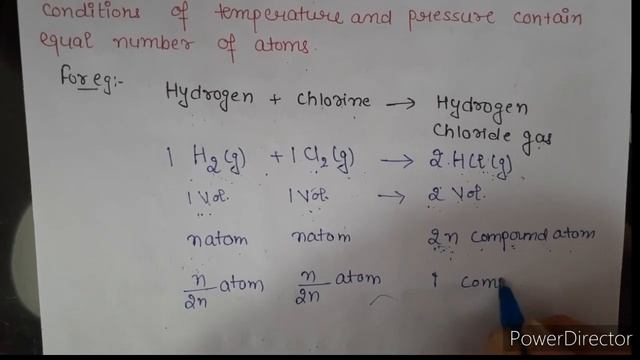 conditions of temperature and pressure contain
equal number of atoms.
For eg:-
Hydrogen + chlorine → Hydrogen
Chloride gas
1 H2(g) + 1 Cl2(g) → 2 HCl(g)
1 Vol. 1 Vol. → 2 Vol.
n atom n atom 2n compound atom
n/2n atom n/2n atom 1 com
PowerDirector